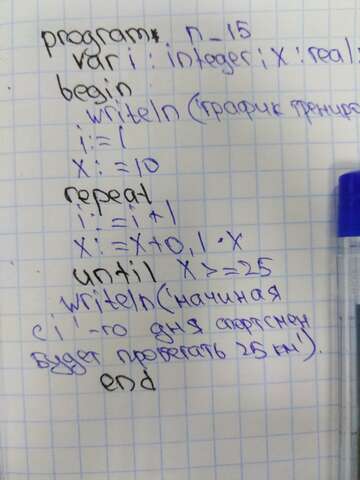 program. n-15
var i: integer; x: real;
begin
writeln ('график трениро
i:=1
x:=10
repeat
i:=i+1
x:=x+0,1*x
until x>=25
writeln ('начиная
с i'-го дня спортсмен
будет пробегать 25 км').
end